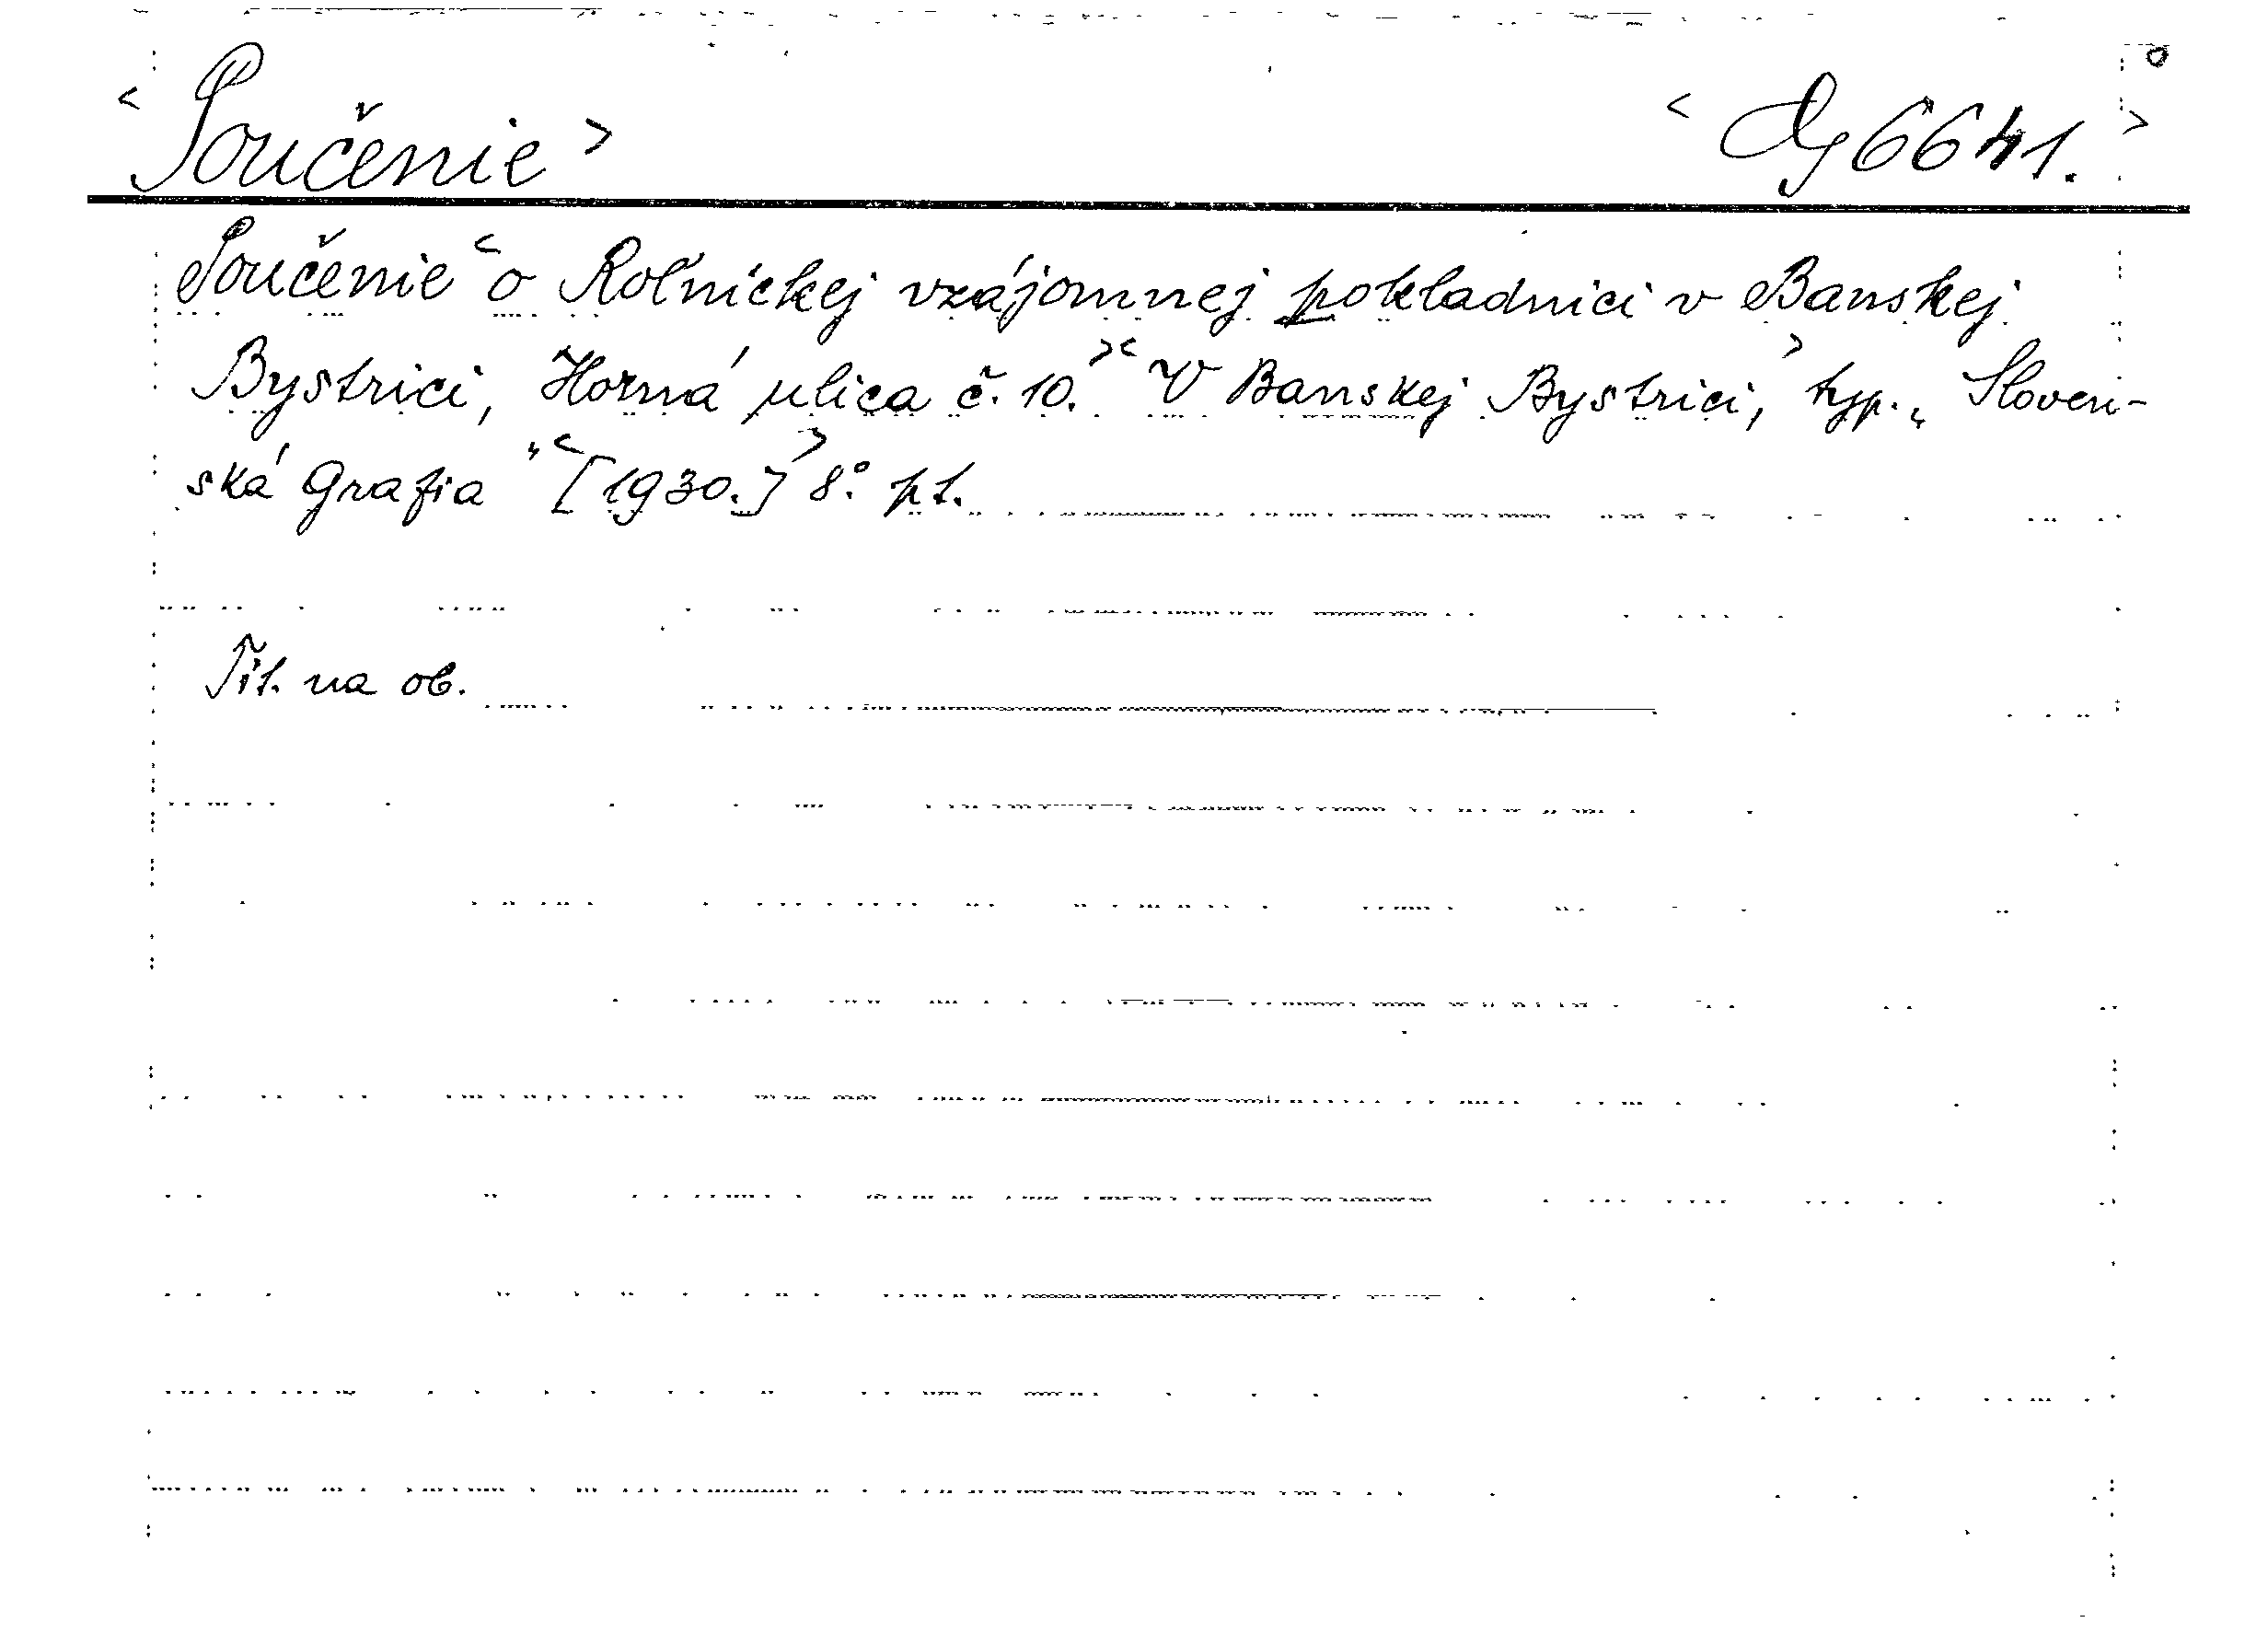 < Poučenie >
< Cg 6641. >
Poučenie < o Roľníckej vzájomnej pokladnici v Banskej
Bystrici, Horná ulica č. 10. >< V Banskej Bystrici, > typ. „Sloven-
ská Grafia" < [1930.] > 8° pl.
Tit. na ob.